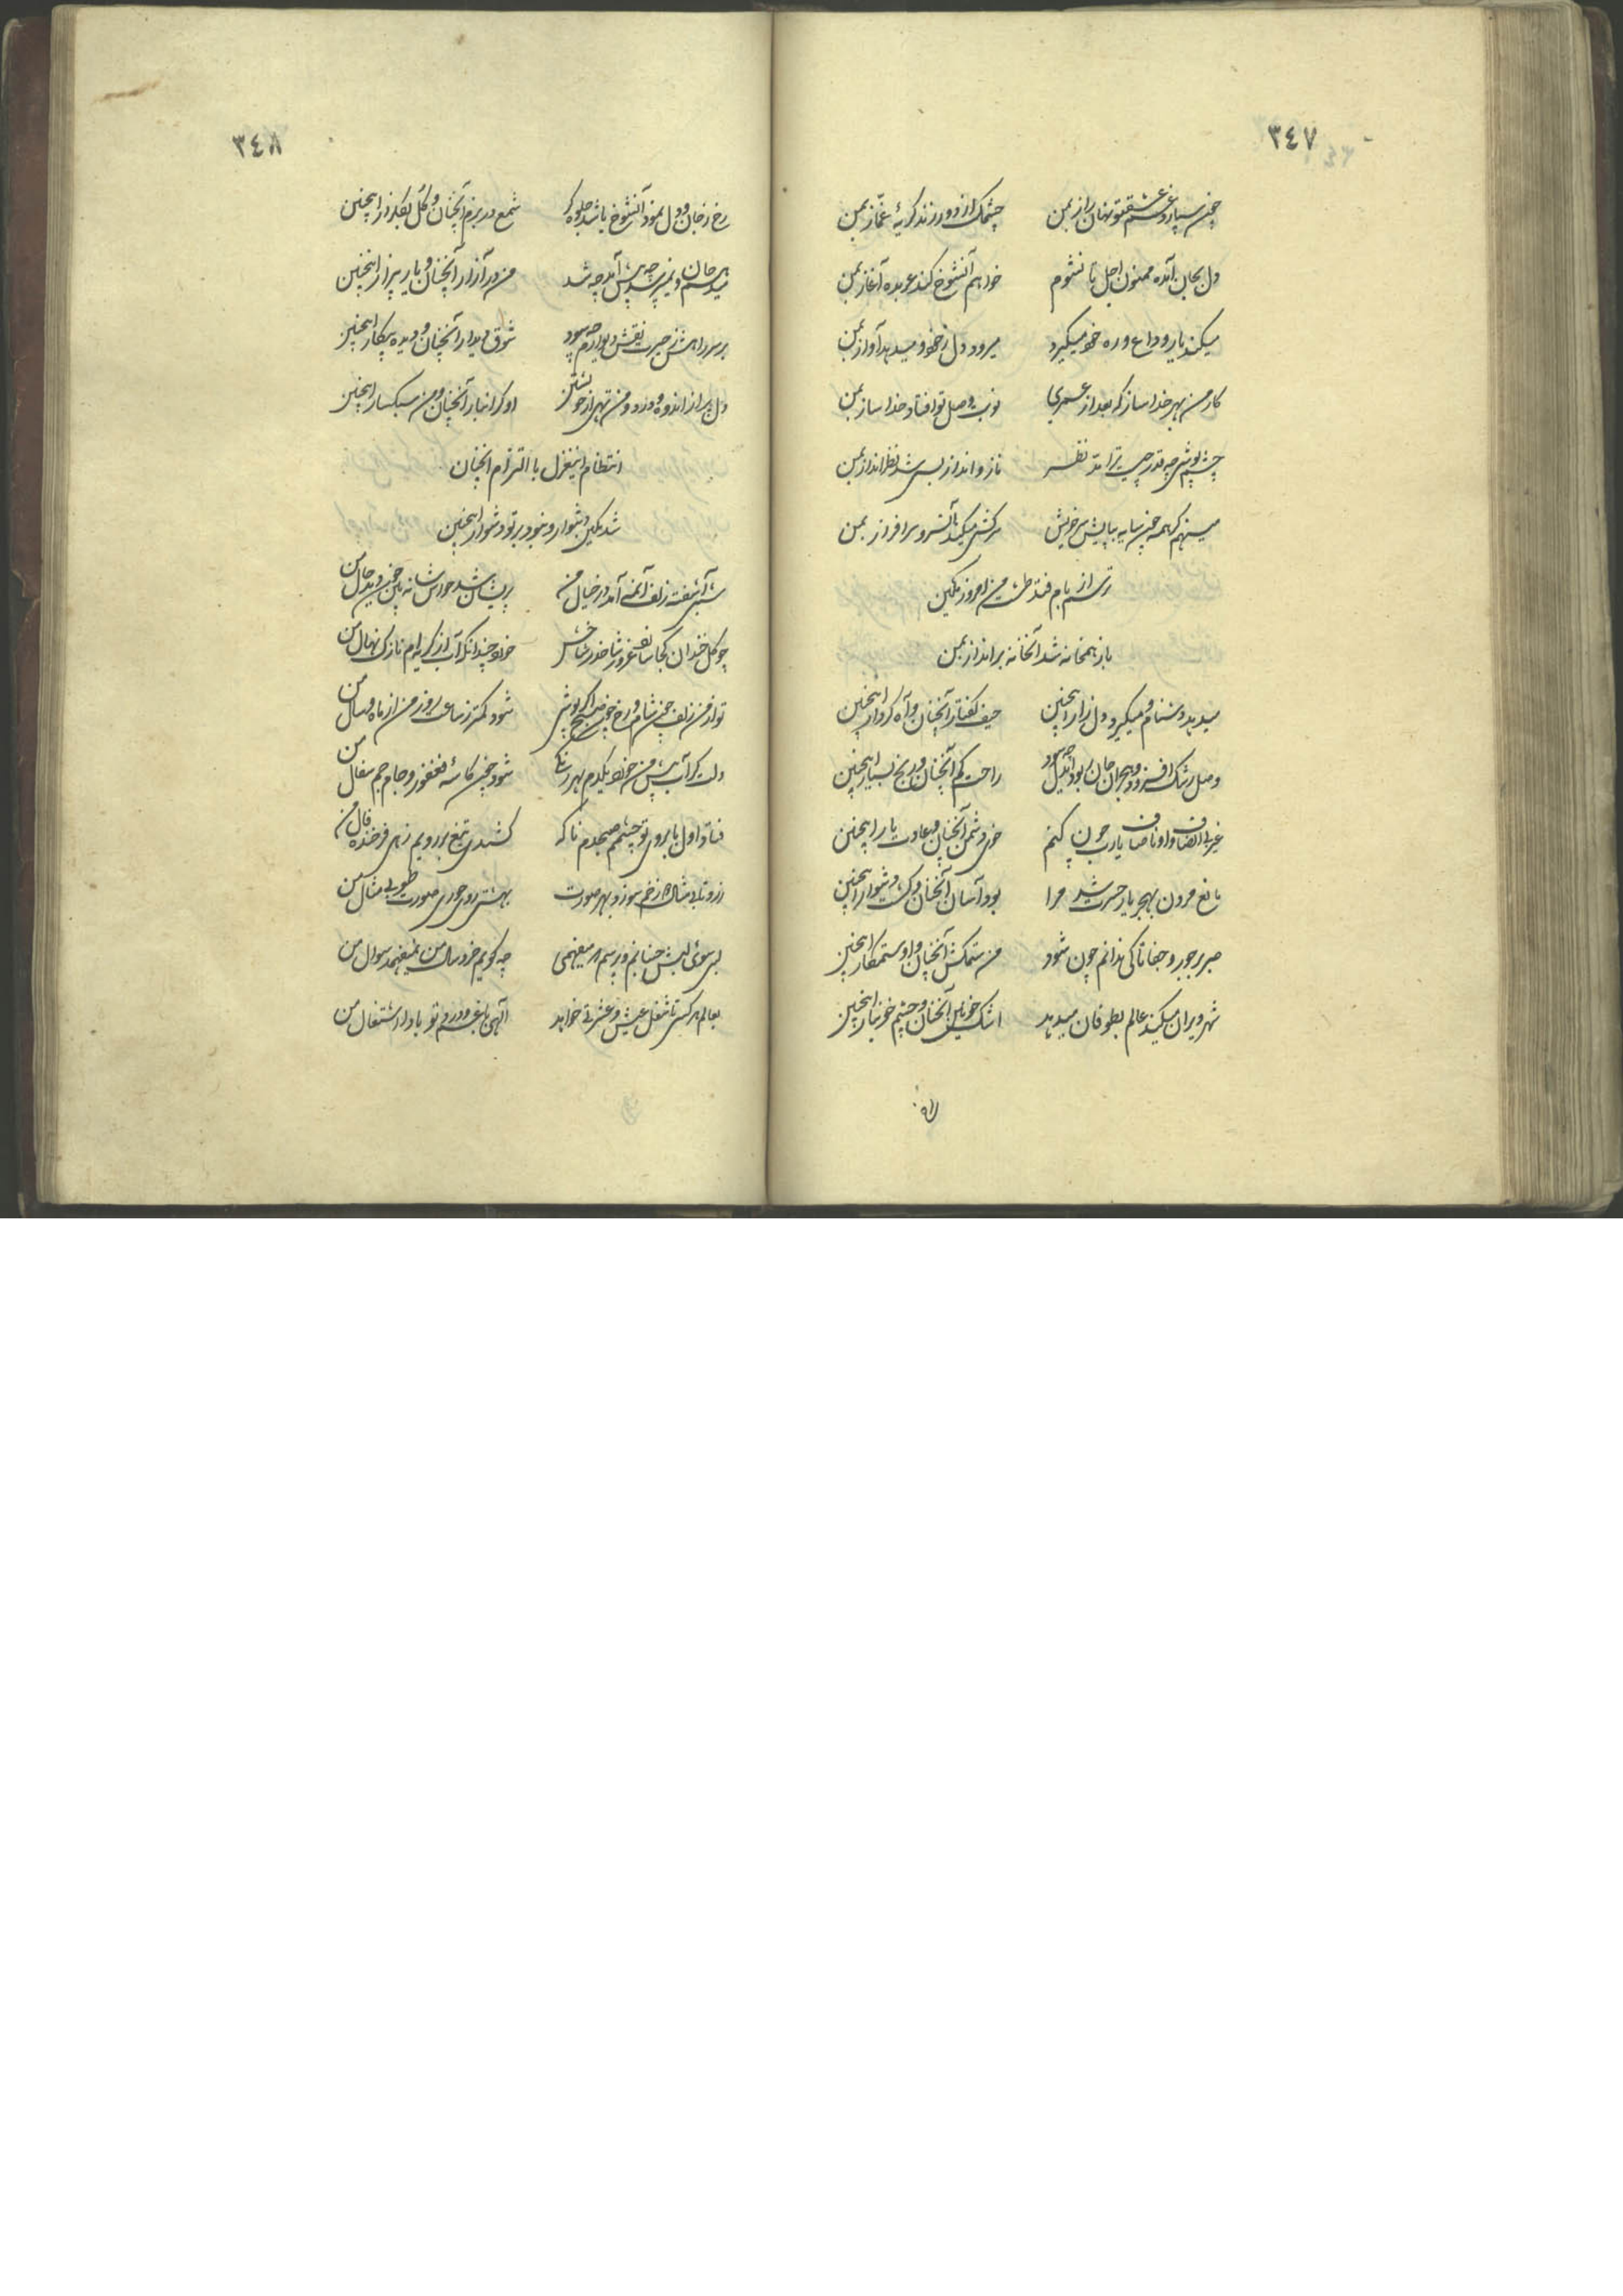 ٣٤٧
چون سپارد غم عشق تو نهان راز بمن چشمک از دور زند گریهٔ غماز بمن
دل بجان آمده ممنون اجل تا نشوم خواهم آن شوخ کند عربده آغاز بمن
میکند یار وداع و ره خود میگیرد میرود دل ز خود و میدهد آواز بمن
کار من بهر خدا ساز که بعد از عمری نوبت وصل تو افتاد خدا ساز بمن
چشم پوشی چه قدر نظر ناز و انداز بسی شد نظر انداز بمن
مینهم گر همه چون سایه بپایش سر خویش سرکشی میکند آن سرو سرافراز بمن
ترسم از بام فتد طشت من امروز تمکین
باز همخانه شد آن خانه برانداز بمن
میدهد دشنام و میگیرد دل زار اینچنین حیف گفتار آنچنان و آه کردار اینچنین
وصل رشک افزود و هجران جان ربود ایدل چه سود راحت کم آنچنان و رنج بسیار اینچنین
غیر با انصاف و او ناصاف یارب چون کنم خوی دشمن آنچنان و عادت یار اینچنین
مانع مردن بهجر یار حسرت شد مرا بود آسان آنچنان و گشت دشوار اینچنین
صبر بر جور و جفا تا کی ندانم چون شود من ستمکش آنچنان و او ستمکار اینچنین
شهر ویران میکند عالم بطوفان میدهد اشک خونین آنچنان و چشم خونبار اینچنین
٣٤٨
رخ ز جان و دل نمود آن شوخ باشد جلوه گر شمع در بزم آنچنان و گل بگلزار اینچنین
میدهم جان و نمی پرسد چه پیش آمد چه شد من در آزار آنچنان و یار بیزار اینچنین
بر سر راهش ز حیرت نقش دیوارم چه سود شوق دیدار آنچنان و دیده بیکار اینچنین
دل پر از اندوه و درد و من تهی از خویشتن او گرانبار آنچنان و من سبکسار اینچنین
انتظام این غزل با التزام آنچنان
شد تمکین دشوار و نبود بر تو دشوار اینچنین
شبی آشفته زلف آمد در خیال من پریشان شد حواس شانه چون دید حال من
چو گل خندان کجا شاخش خورد چندانکه آب از گریه ام نازک نهال من
تو از من زلف چون شام و رخ چون صبح اگر پوشی شود کمتر ز ساعت روز من از ماه و سال من
شود چون کاسهٔ فغفور و جام جم سفال من
فتاد اول بابروی تو چشمم صبحدم ناگه کشیدی تیغ بر رویم زهی فرخنده فال من
بهشتی روی حوری صورت طوبی مثال من
بسی سوی لبش جنبانم و پرسم نمیفهمی چه گویم خردسال من نمیفهمد سوال من
بعالم هر کسی تا شغل عیش و عشرتی خواهد الهی با غم و درد تو بادا اشتغال من